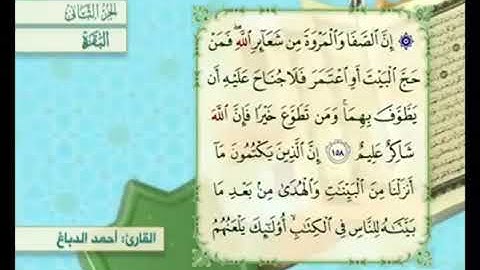 الجزء الثاني
البقرة
۞ إِنَّ ٱلصَّفَا وَٱلْمَرْوَةَ مِن شَعَآئِرِ ٱللَّهِ ۖ فَمَنْ
حَجَّ ٱلْبَيْتَ أَوِ ٱعْتَمَرَ فَلَا جُنَاحَ عَلَيْهِ أَن
يَطَّوَّفَ بِهِمَا ۚ وَمَن تَطَوَّعَ خَيْرًا فَإِنَّ ٱللَّهَ
شَاكِرٌ عَلِيمٌ ١٥٨ إِنَّ ٱلَّذِينَ يَكْتُمُونَ مَآ
أَنزَلْنَا مِنَ ٱلْبَيِّنَٰتِ وَٱلْهُدَىٰ مِنۢ بَعْدِ مَا
بَيَّنَّٰهُ لِلنَّاسِ فِى ٱلْكِتَٰبِ ۙ أُو۟لَٰٓئِكَ يَلْعَنُهُمُ
القارئ: أحمد الدباغ